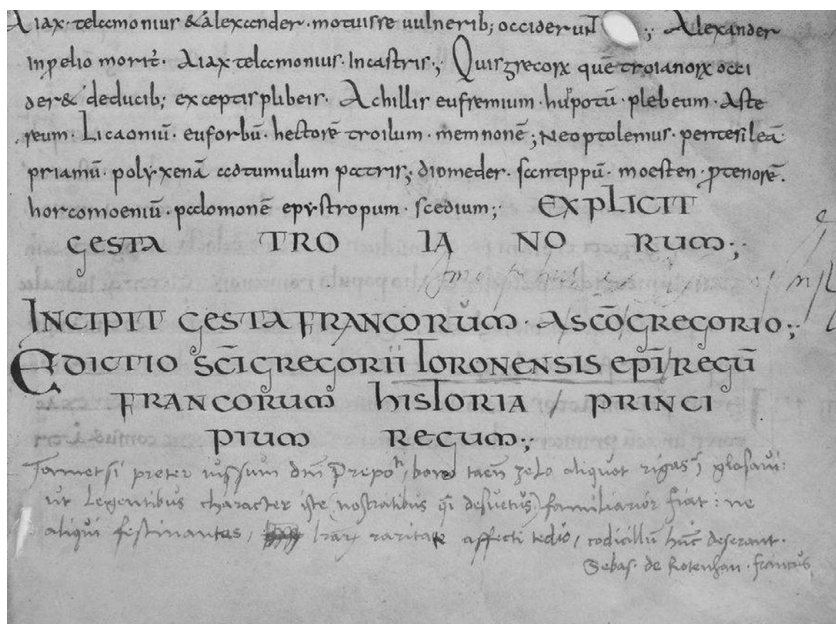 Aiax telamonius & alexander motuisse uulnerib; occiderunt ·; Alexander
inpelio morit̄. Aiax telamonius. Incastris·; Quisgrecorꝝ quē troianorꝝ occi
der& deducib; exceptisplibeis. Achillis eufremium. hu̓potū. plebeum. Aste
reum. Licaoniū. euforbū. hectorē troilum. memnonē; Neoptolemus. pentesileā
priamū. polyxenā adtumulum patris; diomedes. santippū. moesten. ꝓtenorē.
horcomoeniū. palomonē epystropum. scedium;. EXPLICIT
GESTA TRO IA NO RUM;.
INCIPIT GESTA FRANCORUM. A SCŌ GREGORIO;.
EDICTIO SCĪ GREGORII TORONENSIS EPĪ REGŪ
FRANCORUM HISTORIA / PRINCI
PIUM REGUM;.
Tametsi preter iussum dn̄i Prepoᵗⁱ, bono taēn zelo aliquot rigas glosaui:
ut Legentibus character iste (nostratibus q̄i desuetus) familiarior fiat: ne
aliqui festinantes, raritate affecti tedio, codicillū hūc deserant.
Sebas. de Rotenhan. francus